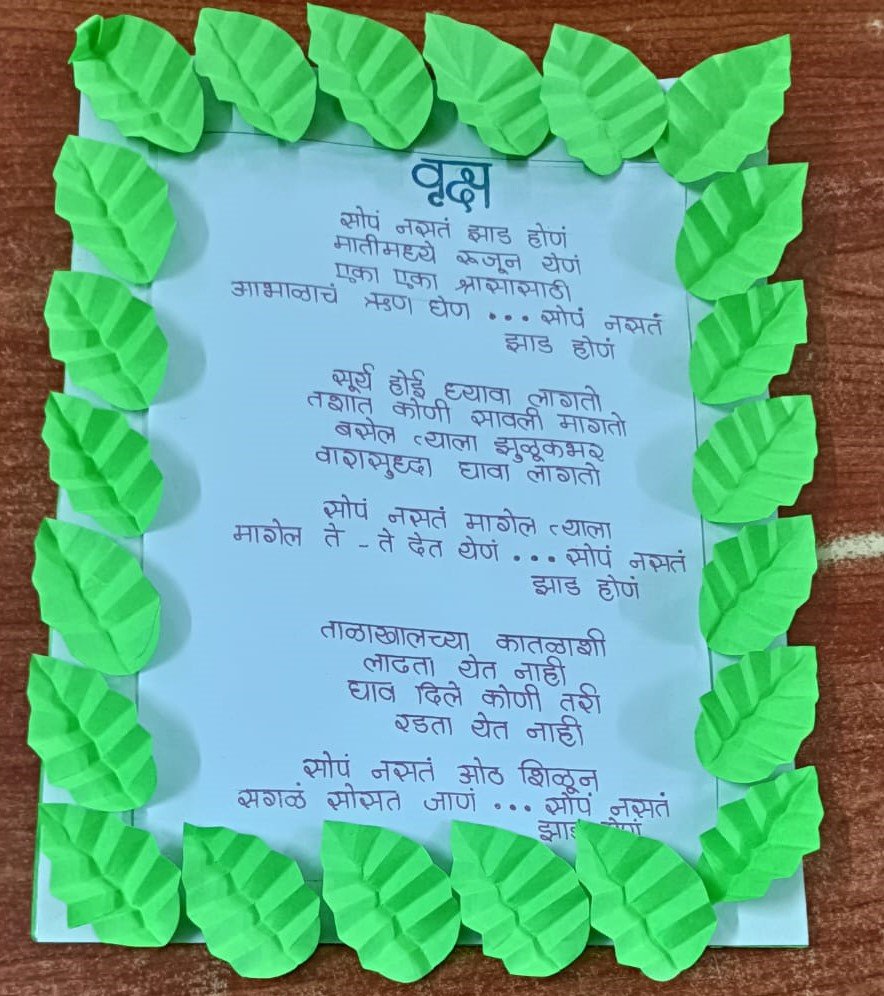 वृक्ष
सोपं नसतं झाड होणं
मातीमध्ये रूजून येणं
एका एका श्वासासाठी
आभाळाचं ऋण घेण ... सोपं नसतं
झाड होणं
सूर्य होई घ्यावा लागतो
तशात कोणी सावली मागतो
बसेल त्याला झुळूकभर
वारासुध्दा घावा लागतो
सोपं नसतं मागेल त्याला
मागेल ते - ते देत येणं ... सोपं नसतं
झाड होणं
ताळाखालच्या कातळाशी
लाढता येत नाही
घाव दिले कोणी तरी
रडता येत नाही
सोपं नसतं ओठ शिळून
सगळं सोसत जाणं ... सोपं नसतं
झाड होणं